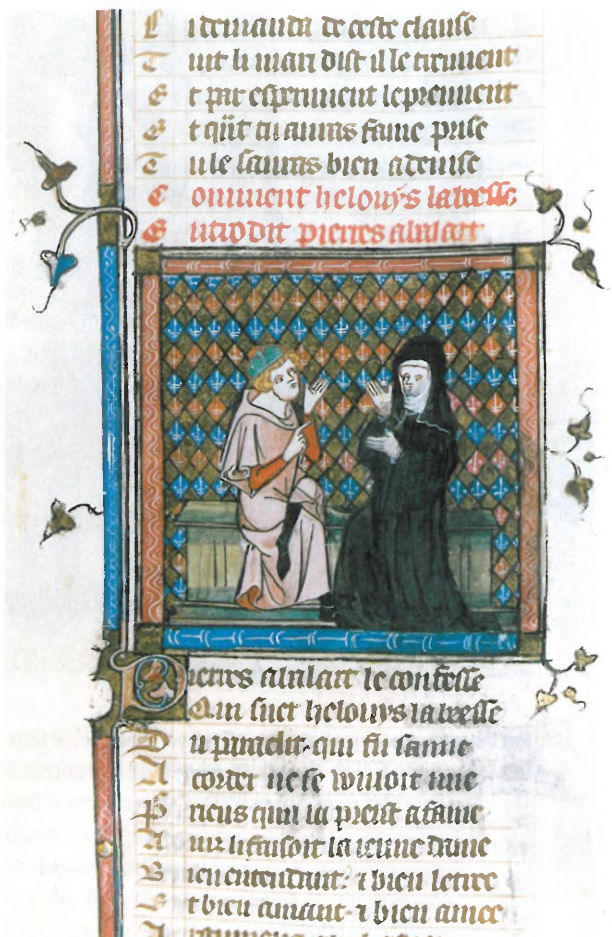 L i demanda de ceste clause
T uit li mari dist il le tiennent
E t par esperiment le preuvent
E t qñt tu auras fame prise
T u le sauras bien a devise
C omment helouys labeesse
dit pierres abalart
Pierres abalart le confesse
Que suer helouys labeesse
D u paraclit qui fu samie
A corder ne se vouloit mie
P riens quil la preist a fame
A li faisoit la jeune dame
B ien entendant ⁊ bien letree
E t bien amant ⁊ bien amee